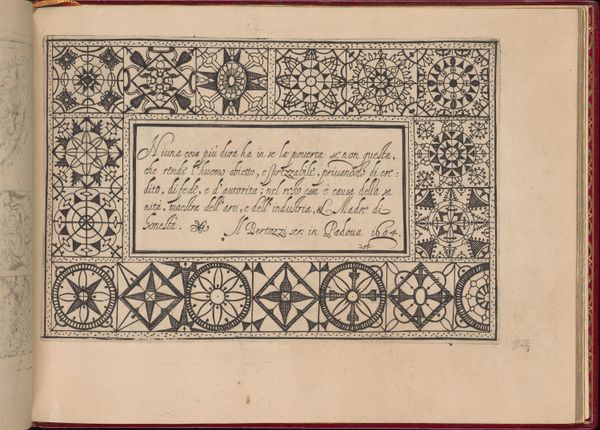 Niuna cosa più dura ha in se la pouerta se non questa,
che rende l'huomo abietto, e sprezzabile, priuandolo di cre-
dito, di fede, e d'autorità: nel resto essa è causa della sa
nità, maestra dell'arti, e dell'industria, & Madre di
Il Bertozzi scr. in Padoua 1604.